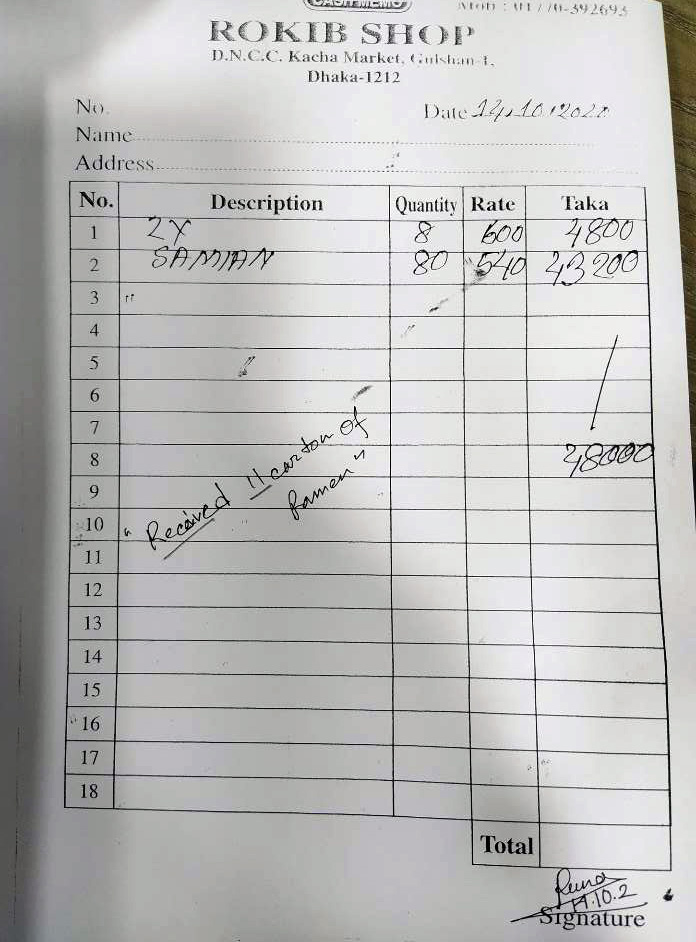 CASH MEMO
Mob : 01770-392693
ROKIB SHOP
D.N.C.C. Kacha Market, Gulshan-1,
Dhaka-1212
No.
Date 14.10.2020
Name
Address
No. Description Quantity Rate Taka
1 2X 8 600 4800
2 SAMIAN 80 540 43200
3 "
4
5
6
7
8 48000
"Received 11 carton of
Ramen"
9
10
11
12
13
14
15
16
17
18
Total
14.10.2
Signature